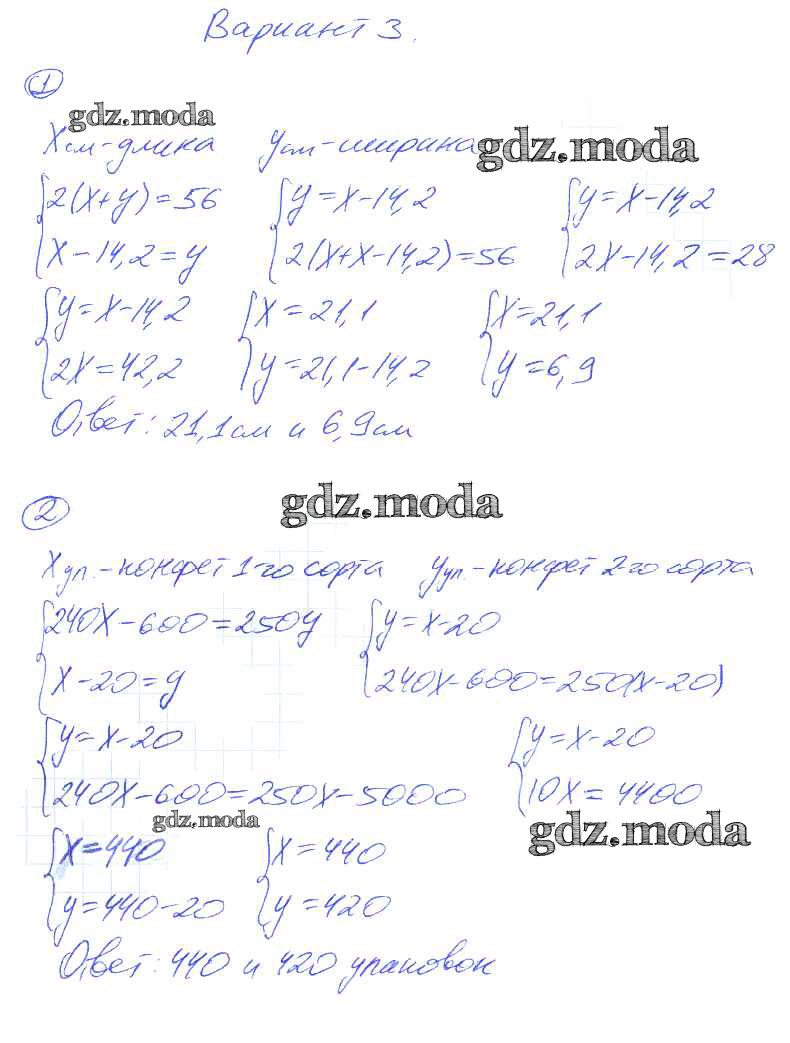 Вариант 3.
1
gdz.moda
x см - длина y см - ширина gdz.moda
2(x+y)=56 y=x-14,2 y=x-14,2
x-14,2=y 2(x+x-14,2)=56 2x-14,2=28
y=x-14,2 x=21,1 x=21,1
2x=42,2 y=21,1-14,2 y=6,9
Ответ: 21,1 см и 6,9 см
2 gdz.moda
x уп. - конфет 1-го сорта y уп. - конфет 2-го сорта
240x-600=250y y=x-20
x-20=y 240x-600=250(x-20)
y=x-20 y=x-20
240x-600=250x-5000 10x=4400
gdz.moda gdz.moda
x=440 x=440
y=440-20 y=420
Ответ: 440 и 420 упаковок